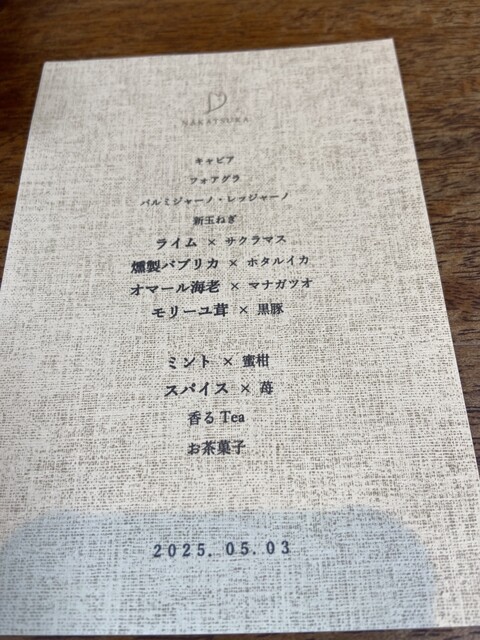 NAKATSUKA
キャビア
フォアグラ
パルミジャーノ・レッジャーノ
新玉ねぎ
ライム × サクラマス
燻製パプリカ × ホタルイカ
オマール海老 × マナガツオ
モリーユ茸 × 黒豚
ミント × 蜜柑
スパイス × 苺
香るTea
お茶菓子
2025.05.03